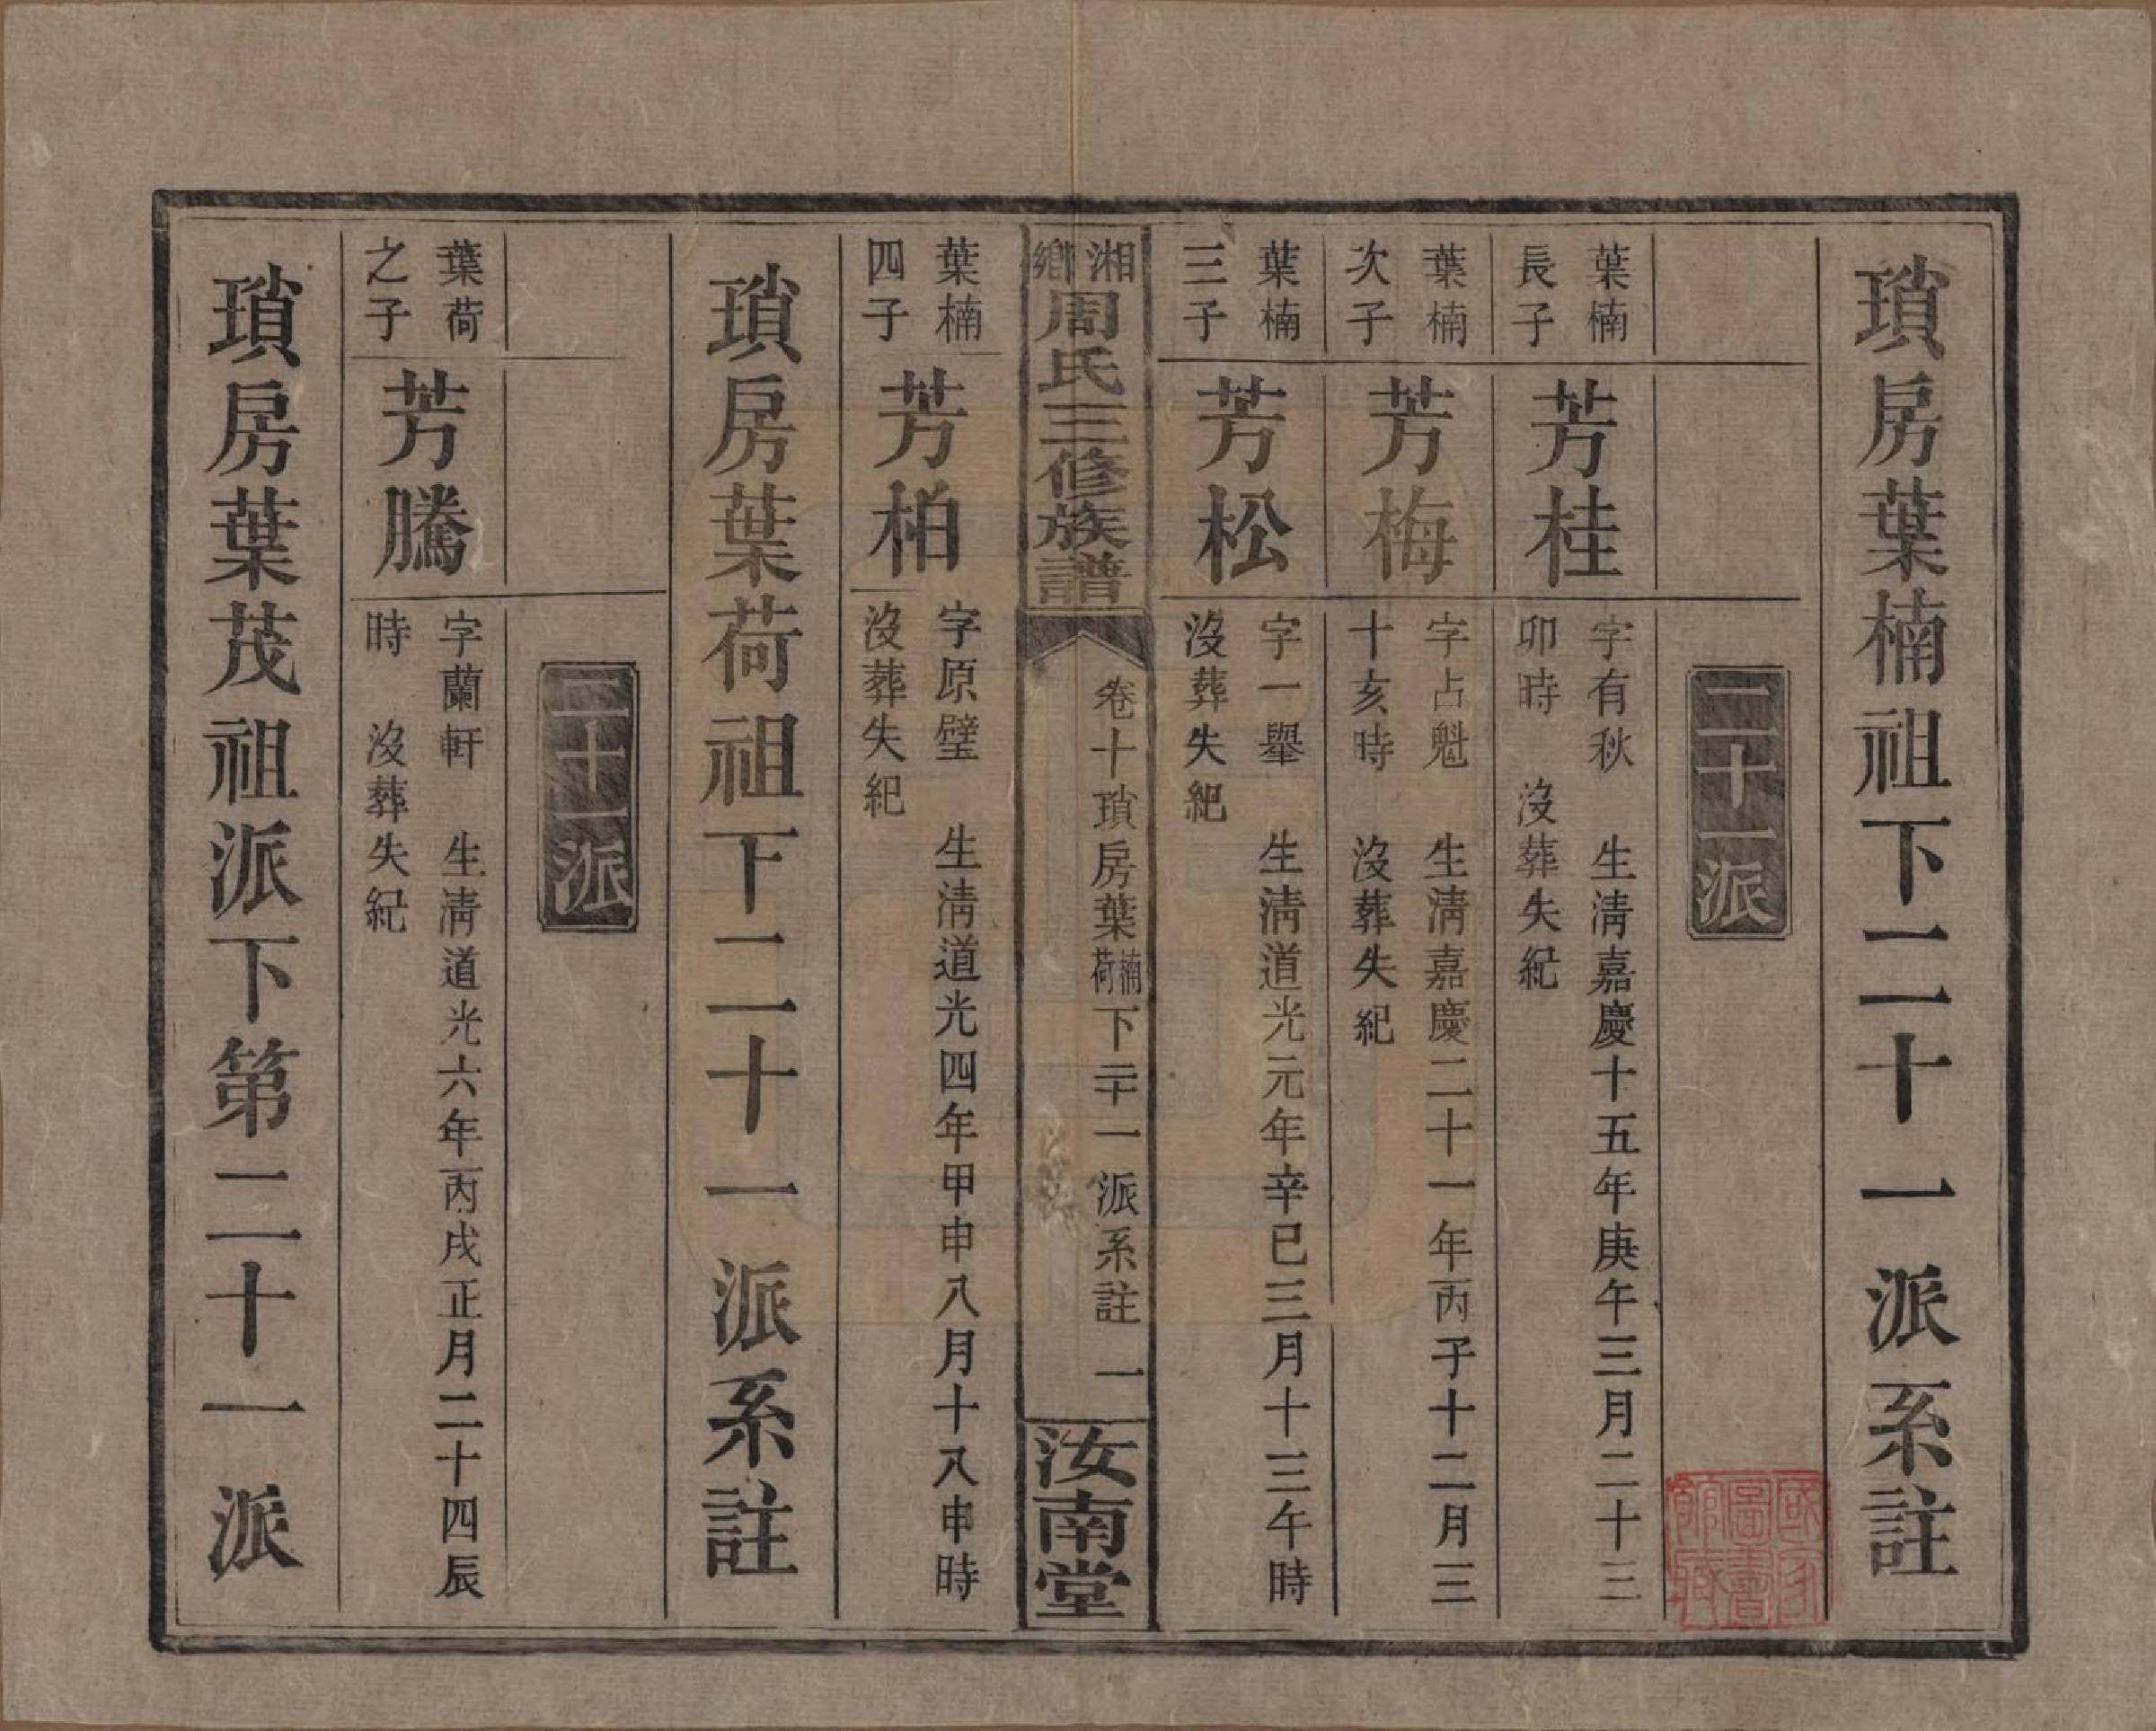 瑣房葉楠祖下二十一派系註
二十一派
葉楠
長子
芳桂
字有秋　生淸嘉慶十五年庚午三月二十三
卯時　沒葬失紀
葉楠
次子
芳梅
字占魁　生淸嘉慶二十一年丙子十二月三
十亥時　沒葬失紀
葉楠
三子
芳松
字一舉　生淸道光元年辛巳三月十三午時
沒葬失紀
湘鄉周氏三修族譜
卷十瑣房葉楠荷下二十一派系註　一
汝南堂
葉楠
四子
芳柏
字原璧　生淸道光四年甲申八月十八申時
沒葬失紀
瑣房葉荷祖下二十一派系註
二十一派
葉荷
之子
芳騰
字蘭軒　生淸道光六年丙戌正月二十四辰
時　沒葬失紀
瑣房葉茂祖派下第二十一派
國家圖書館藏